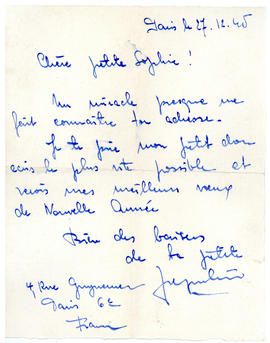 Paris le 27.12.45
Chère petite Sophie !
Un miracle presque me
fait connaître ton adresse.
Je te prie mon petit
écris le plus vite possible et
reçois mes meilleurs vœux
de Nouvelle Année
Bien des baisers
de la petite
4, Rue Guynemer
Paris 6e
France